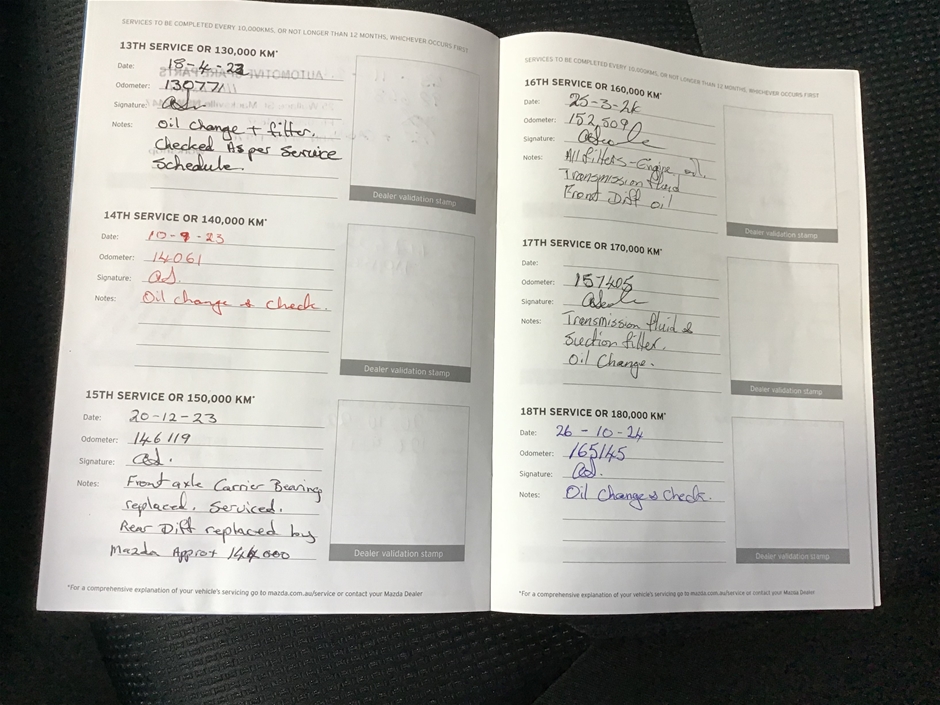 SERVICES TO BE COMPLETED EVERY 10,000KMS, OR NOT LONGER THAN 12 MONTHS, WHICHEVER OCCURS FIRST
13TH SERVICE OR 130,000 KM*
Date: 18-4-23
Odometer: 130771
Signature:
Notes: Oil change + filter.
Checked As per Service
Schedule.
Dealer validation stamp
14TH SERVICE OR 140,000 KM*
Date: 10-9-23
Odometer: 14061
Signature:
Notes: Oil change & check.
Dealer validation stamp
15TH SERVICE OR 150,000 KM*
Date: 20-12-23
Odometer: 146119
Signature:
Notes: Front axle Carrier Bearings
replaced. Serviced.
Rear Diff replaced by
Mazda Approx 144000
Dealer validation stamp
*For a comprehensive explanation of your vehicle's servicing go to mazda.com.au/service or contact your Mazda Dealer
SERVICES TO BE COMPLETED EVERY 10,000KMS, OR NOT LONGER THAN 12 MONTHS, WHICHEVER OCCURS FIRST
16TH SERVICE OR 160,000 KM*
Date: 25-3-24
Odometer: 152,509
Signature:
Notes: All filters - Engine oil.
Transmission fluid
Front Diff oil
Dealer validation stamp
17TH SERVICE OR 170,000 KM*
Date:
Odometer: 157405
Signature:
Notes: Transmission fluid &
Suction filter.
Oil Change.
Dealer validation stamp
18TH SERVICE OR 180,000 KM*
Date: 26-10-24
Odometer: 165145
Signature:
Notes: Oil Change & Check.
Dealer validation stamp
*For a comprehensive explanation of your vehicle's servicing go to mazda.com.au/service or contact your Mazda Dealer